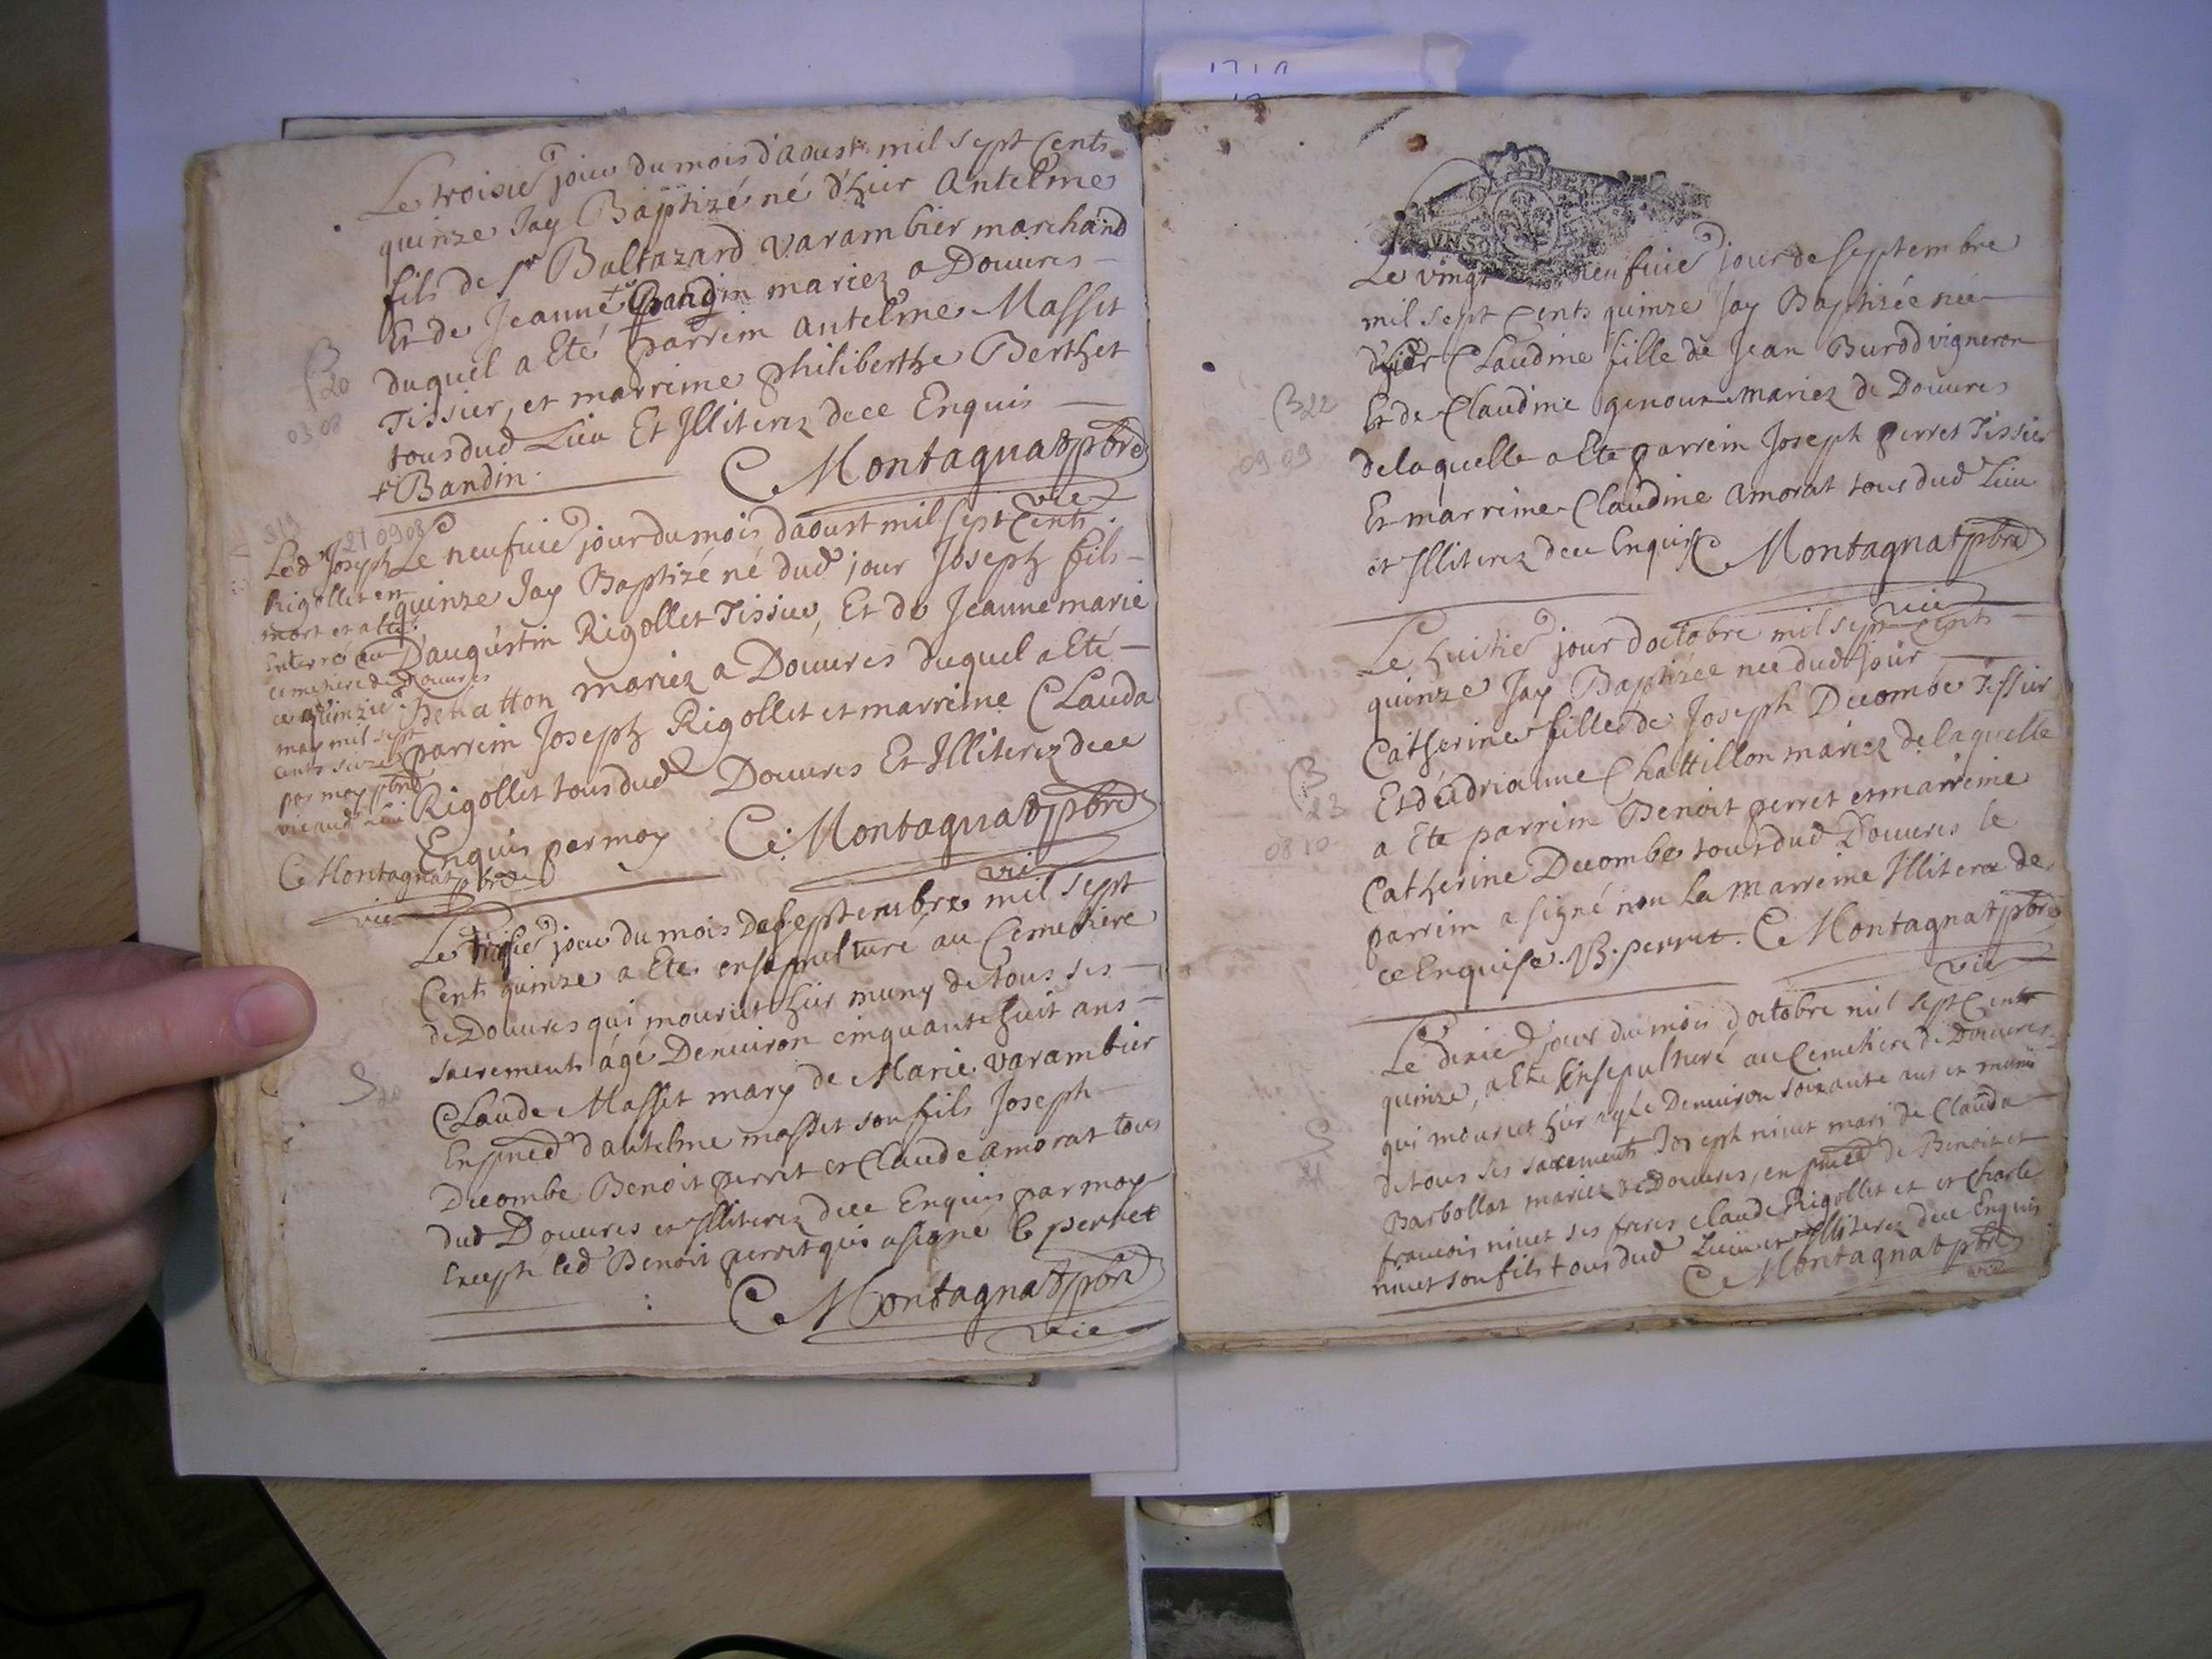 Le troisie jour du mois d'aoust mil sept Cents
quinze Jay Baptizé né d'hier Antelme
fils de sr Baltazard varambier marchand
Et de Jeanne + mariez a Douures
duquel a Eté parrein antelme Masset
Tissier, et marreine philiberthe Berthet
tous dud Lieu Et Illiterez dece Enquis
+ Bandin. C Montagnat pbre
vic
B
20
03 08
21 09 08
Led Joseph
Rigollet en
mort et a été
enterré au
cemetiere de Douures
ce quinzie
may mil sept
cents seize
par moy pbre
vic aud lieu
C Montagnat pbre
vic
Le neufuie jour du mois daoust mil sept Cents
quinze Jay Baptizé né dud jour Joseph fils
D'augustin Rigollet Tissier, Et de Jeanne marie
mariez a Douures duquel a Eté
parrein Joseph Rigollet et marreine Clauda
Rigollet tous dud Douures Et Illiterez dece
Enquis par moy C. Montagnat pbre
vic
Le jour du mois de septembre mil sept
Cents quinze a Eté ensepulturé au Cemetiere
de Douures qui mourut hier muny de tous ses
sacrements agé Denuiron cinquante huit ans
Claude Masset mary de Marie varambier
En pnce d'antelme masset son fils Joseph
Decombe Benoit perret et Claude amorat tous
dud Douures et Illiterez dece Enquis par moy
Excepte led Benoit perret qui a signé B perret
C Montagnat pbre
vic
S
20
1710
Le vingt neufuie jour de septembre
mil sept Cents quinze Jay Baptizée née
d'hier Claudine fille de Jean Burod vigneron
Et de Claudine genoux mariez de Douures
de laquelle a Eté parrein Joseph perret Tissier
Et marreine Claudine amorat tous dud Lieu
et Illiterez dece Enquis C Montagnat pbre
vic
B 22
09 09
Le huitie jour d'octobre mil sept Cents
quinze Jay Baptizée née dud jour
Catherine fille de Joseph Decombe Tissier
Et d'adrianne Chattillon mariez de laquelle
a Eté parrein Benoit perret et marreine
Catherine Decombe tous dud Douures le
parrein a signé non La marreine Illiteree de
ce Enquise. B. perret. C Montagnat pbre
vic
B
23
08 10
Le dixie jour du mois d'octobre mil sept Cents
quinze, a Eté Ensepulturé au Cemetiere de Douures
qui mourut hier agée Denuiron soixante ans et muni
de tous ses sacrements Joseph niuet mari de Clauda
Barbollat mariez de Douures, en pnce de Benoit et
francois niuet ses freres claude Rigollet et et Charle
niuet son fils tous dud Lieu et Illiterez dece Enquis
C Montagnat pbre
vic
S